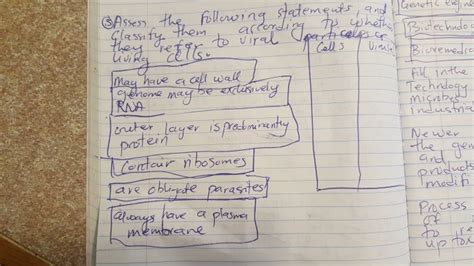 ③Assess the following statements and
classify them according to whether
they refer to viral particles or
living cells.
Cells
may have a cell wall
genome may be exclusively
RNA
outer layer is predominantly
protein
Contain ribosomes
are obligate parasites
always have a plasma
membrane
Genetic
Biotechno
Bioremedia
Fill in the
Technology
microbes
industri
Newer
the gen
and
products
modifi
Process
of
to